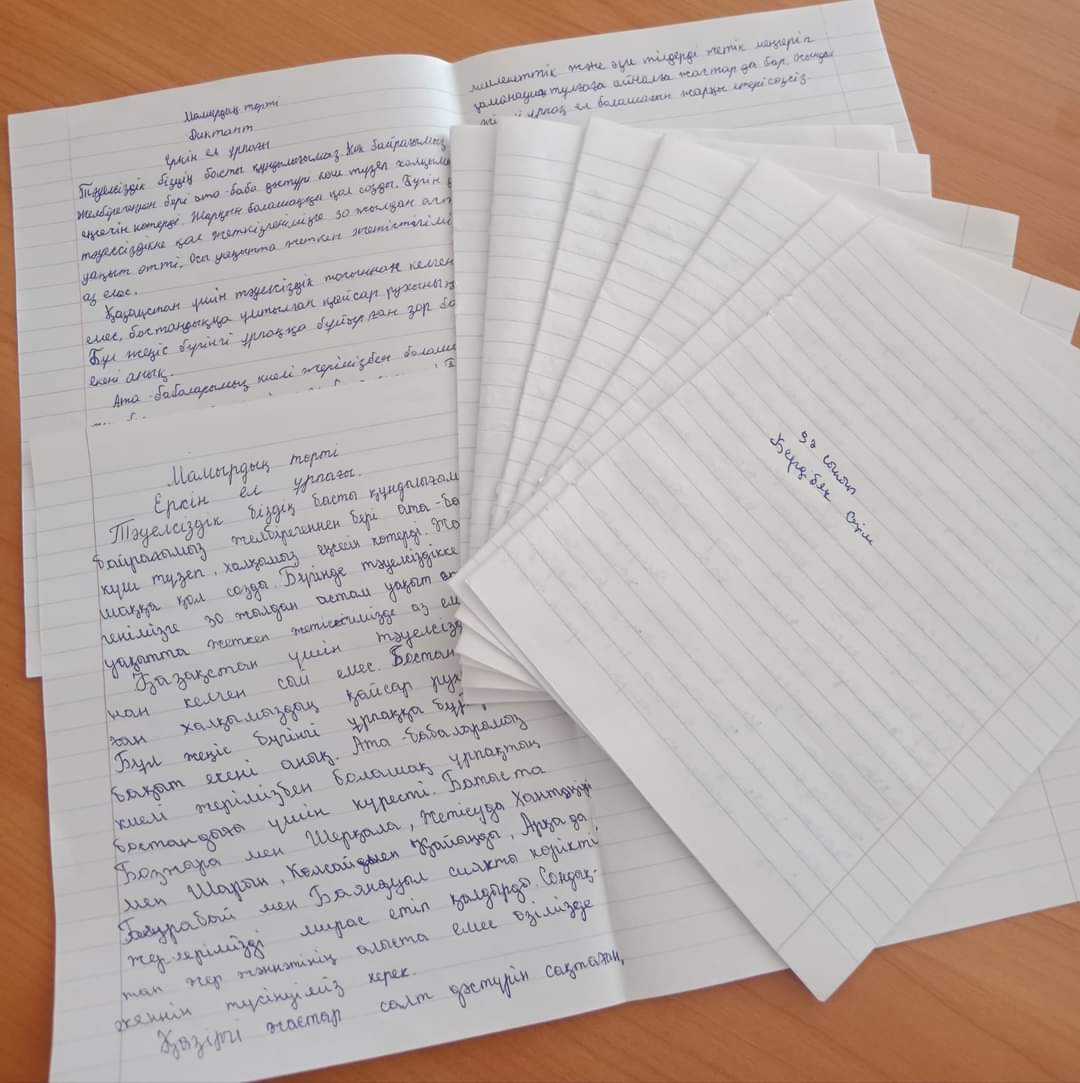 Мамырдың төрті
Диктант
Еркін ел ұрпағы
Тәуелсіздік біздің басты құндылығымыз. Көк байрағымыз
желбірегеннен бері ата-баба дәстүрі көш түзеп халқымы
еңсесін көтерді. Жарқын болашаққа қол созды. Бүгін
тәуелсіздікке қол жеткізгенімізге 30 жылдан аст
уақыт өтті. Осы уақытта жеткен жетістігімі
аз емес.
Қазақстан үшін тәуелсіздік тосыннан келген
емес, бостандыққа ұмтылған қайсар рухының
Бұл жеңіс бүгінгі ұрпаққа бұйырған зор ба
екені анық.
Ата-бабаларымыз киелі жерімізбен болаша
миллеттік және өзге тілдерді жетік меңгеріп
заманауи тұлғаға айналған жастар да бар. Осындай
ұрпақ ел болашағын жарқын етері сөзсіз.
Мамырдың төрті
Еркін ел ұрпағы.
Тәуелсіздік біздің басты құндылығым
байрағымыз желбірегеннен бері ата-ба
күш түзеп, халқымыз еңсесін көтерді. Жа
шаққа қол созды. Бүгінде тәуелсіздікке
генімізге 30 жылдан астам уақыт өт
уақытта жеткен жетісігімізде аз ем
Қазақстан үшін тәуелсізд
нан келген сый емес. Бостан
ған халқымыздың қайсар рух
Бұл жеңіс бүгінгі ұрпаққа бұй
бақыт екені анық. Ата-бабаларамыз
киелі жерімізбен болашақ ұрпақтың
бостандығы үшін күресті. Батыста
Бозжара мен Шерқала, Жетісуда Хантәңірі
мен Шарын, Көлсай мен Қайыңды, Арқада
Бурабай мен Баянауыл сияқты көрікті
жерлерімізді мирас етіп қалдырды. Сондақ-
тан жер жәннәтінің алыста емес өзімізде
женнін түсінуіміз керек.
Қазіргі жастар салт дәстүрін сақтаған,
9ә сынып
Бердібек